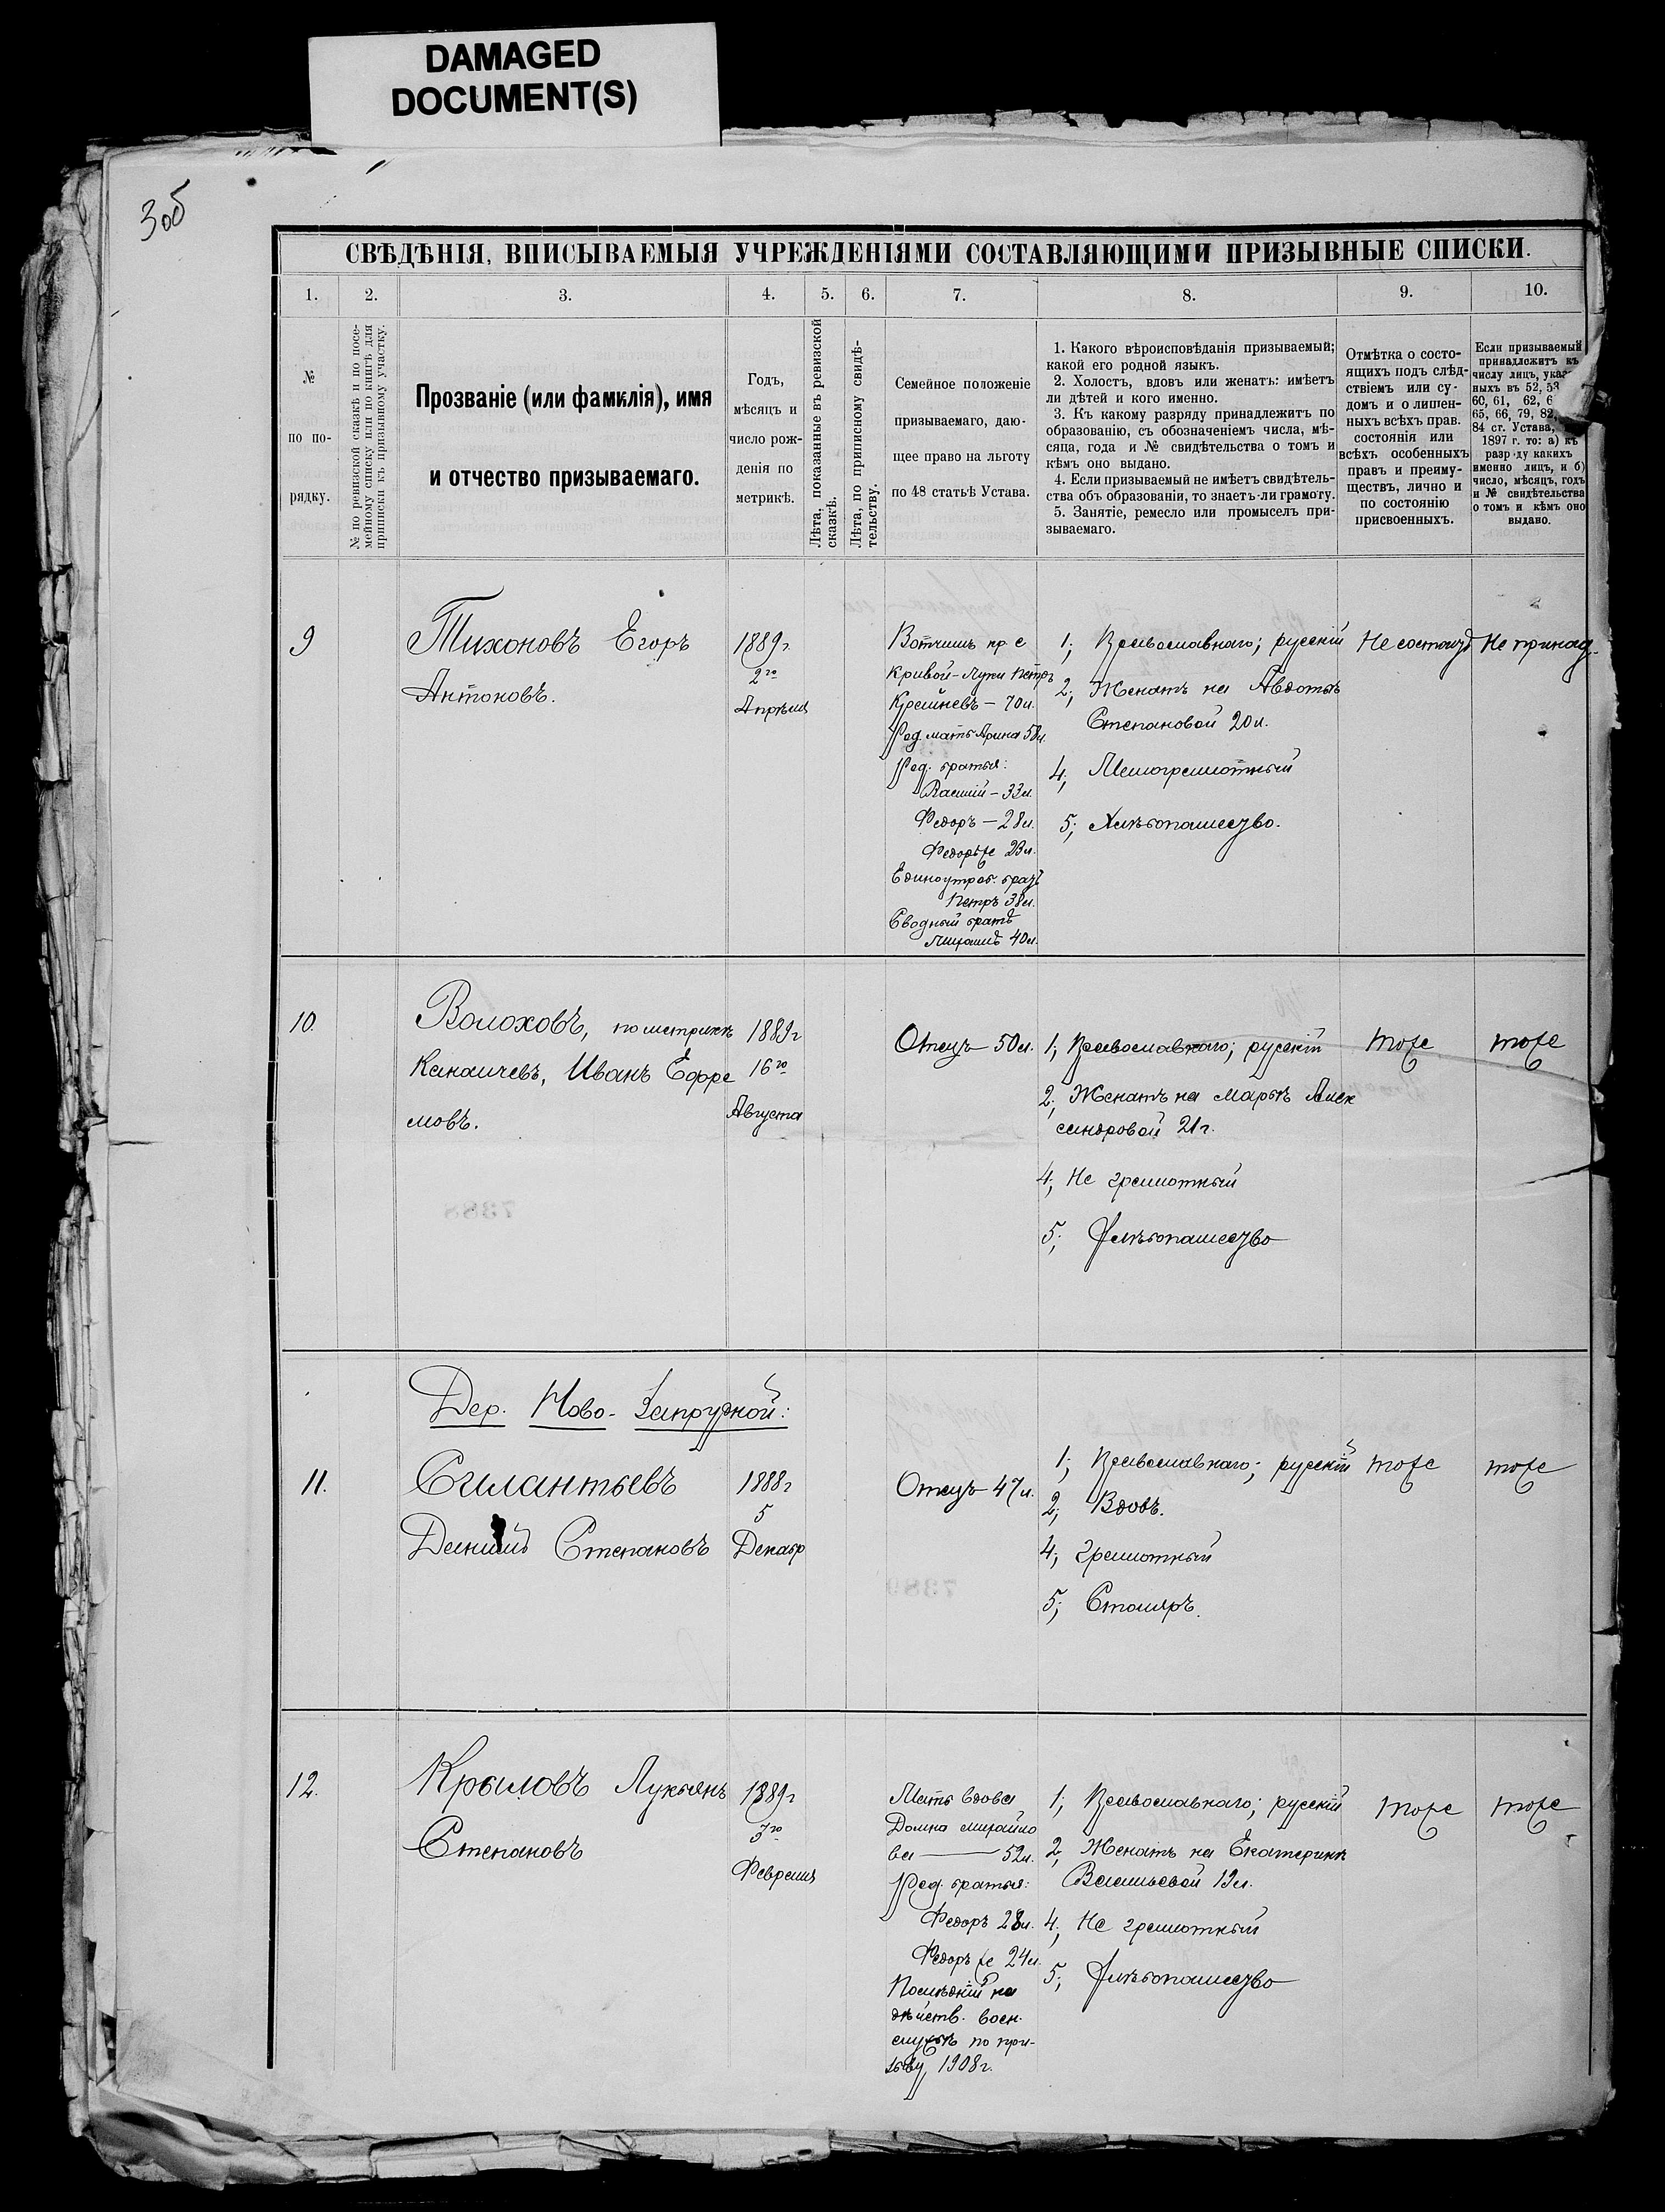 DAMAGED
DOCUMENT(S)
3об
СВѢДѢНІЯ, ВПИСЫВАЕМЫЯ УЧРЕЖДЕНІЯМИ СОСТАВЛЯЮЩИМИ ПРИЗЫВНЫЕ СПИСКИ.
1. 2. 3. 4. 5. 6. 7. 8. 9. 10.
№
по по-
рядку.
№ по ревизской сказкѣ и по посе-
мейному списку или по книгѣ для
приписки къ призывному участку.
Прозваніе (или фамилія), имя
и отчество призываемаго.
Годъ,
мѣсяцъ и
число рож-
денія по
метрикѣ.
Лѣта, показанные въ ревизской
сказкѣ.
Лѣта, по приписному свидѣ-
тельству.
Семейное положеніе
призываемаго, даю-
щее право на льготу
по 48 статьѣ Устава.
1. Какого вѣроисповѣданія призываемый;
какой его родной языкъ.
2. Холостъ, вдовъ или женатъ: имѣетъ
ли дѣтей и кого именно.
3. Къ какому разряду принадлежитъ по
образованію, съ обозначеніемъ числа, мѣ-
сяца, года и № свидѣтельства о томъ и
кѣмъ оно выдано.
4. Если призываемый не имѣетъ свидѣтель-
ства объ образованіи, то знаетъ-ли грамоту.
5. Занятіе, ремесло или промыселъ при-
зываемаго.
Отмѣтка о состо-
ящихъ подъ слѣд-
ствіемъ или су-
домъ и о лишен-
ныхъ всѣхъ прав.
состоянія или
всѣхъ особенныхъ
правъ и преиму-
ществъ, лично и
по состоянію
присвоенныхъ.
Если призываемый
принадлежитъ къ
числу лицъ, указ
ныхъ въ 52, 53
60, 61, 62, 6
65, 66, 79, 82,
84 ст. Устава,
1897 г. то: а) къ
разр ду какихъ
именно лицъ, и б)
число, мѣсяцъ, годъ
и № свидѣтельства
о томъ и кѣмъ оно
выдано.
9
Тихоновъ Егоръ
Антоновъ.
1889г.
2го
Апрѣля
Вотчимъ кр с
Кривой-Луки Петръ
70л.
Род. мать Арина 58л.
Род. братья:
Василій – 33л.
Федоръ – 28л.
Федоръ же 23л.
Единоутроб. братъ
Петръ 38л.
Сводный братъ
40л.
1; Православнаго; русскій
2; Женатъ на Авдотьѣ
Степановой 20л.
4; Малограмотный
5; Хлѣбопашество.
Не состоитъ
Не принад.
10.
Волоховъ, по метрикѣ
Канаичевъ, Иванъ Ефре
мовъ.
1889г
16го
Августа
Отецъ 50л.
1; Православнаго; русскій
2; Женатъ на Марьѣ Алек
сандровой 21г.
4; Не грамотный
5; Хлѣбопашество
тоже
тоже
Дер. Ново-Запрудной:
11.
Силантьевъ
Данилъ Степановъ
1888г
5
Декабр
Отецъ 47л.
1; Православнаго; русскій
2; Вдовъ.
4; Грамотный
5; Столяръ.
тоже
тоже
12.
Крыловъ Лукьянъ
Степановъ
1889г
3го
Февраля
Мать вдова
Домна Михайло
ва — 52л.
Род. братья:
Федоръ 28л.
Федоръ же 24л.
Послѣдній на
дѣйств. воен.
службѣ по при-
зыву 1908г.
1; Православнаго; русскій
2; Женатъ на Екатеринѣ
Васильевой 19л.
4; Не грамотный
5; Хлѣбопашество
тоже
тоже